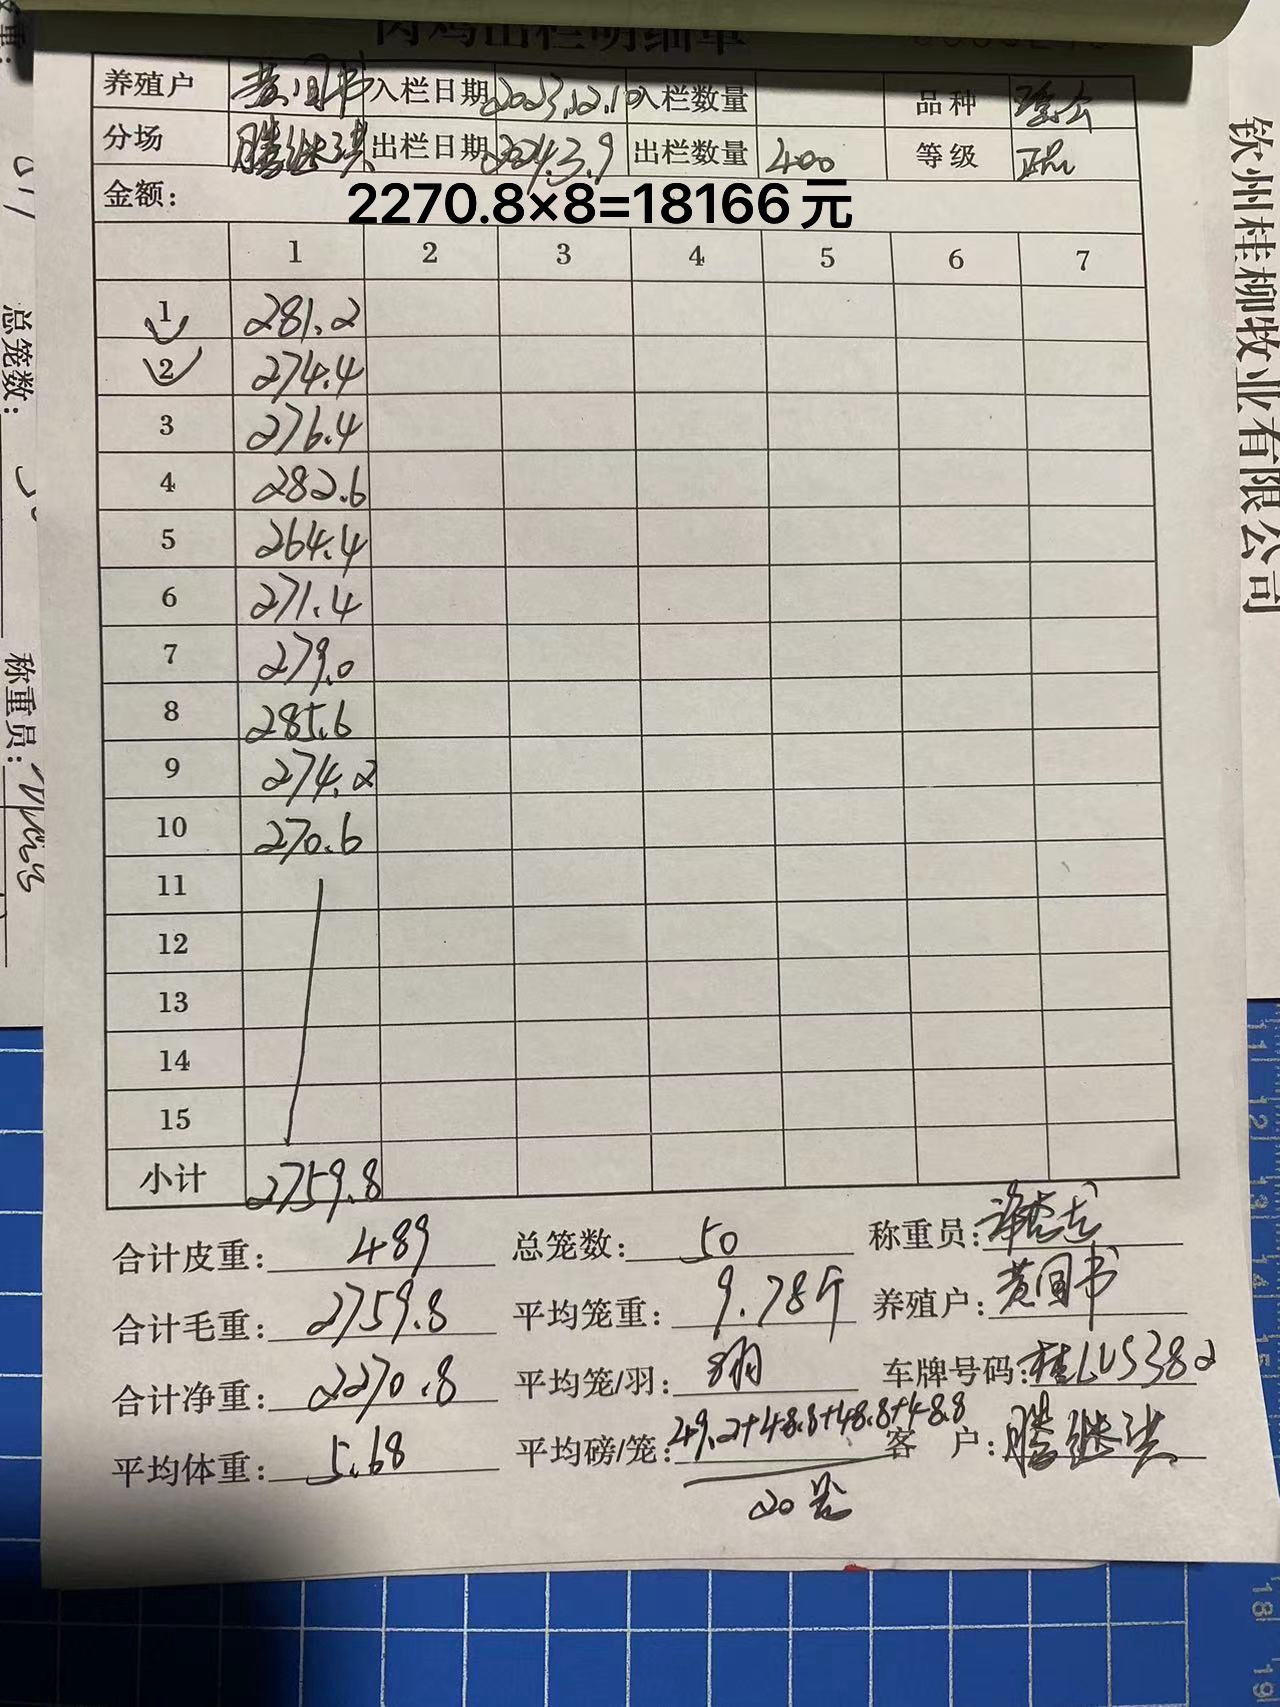 肉鸡出栏明细单
养殖户 黄间书 入栏日期 2023.12.10 入栏数量 品种
分场 滕继洪 出栏日期 2024.3.9 出栏数量 400 等级 正品
金额: 2270.8×8=18166元
1 2 3 4 5 6 7
1 281.2
2 274.4
3 276.4
4 282.6
5 264.4
6 271.4
7 279.0
8 285.6
9 274.2
10 270.6
11
12
13
14
15
小计 2759.8
合计皮重: 489 总笼数: 50 称重员:
合计毛重: 2759.8 平均笼重: 9.78斤 养殖户: 黄间书
合计净重: 2270.8 平均笼/羽: 8羽 车牌号码: 桂LU5382
平均体重: 5.68 平均磅/笼: 49.2+48.8+48.8+48.8 客户: 滕继洪
20笼
钦州桂柳牧业有限公司
总笼数:
称重员: